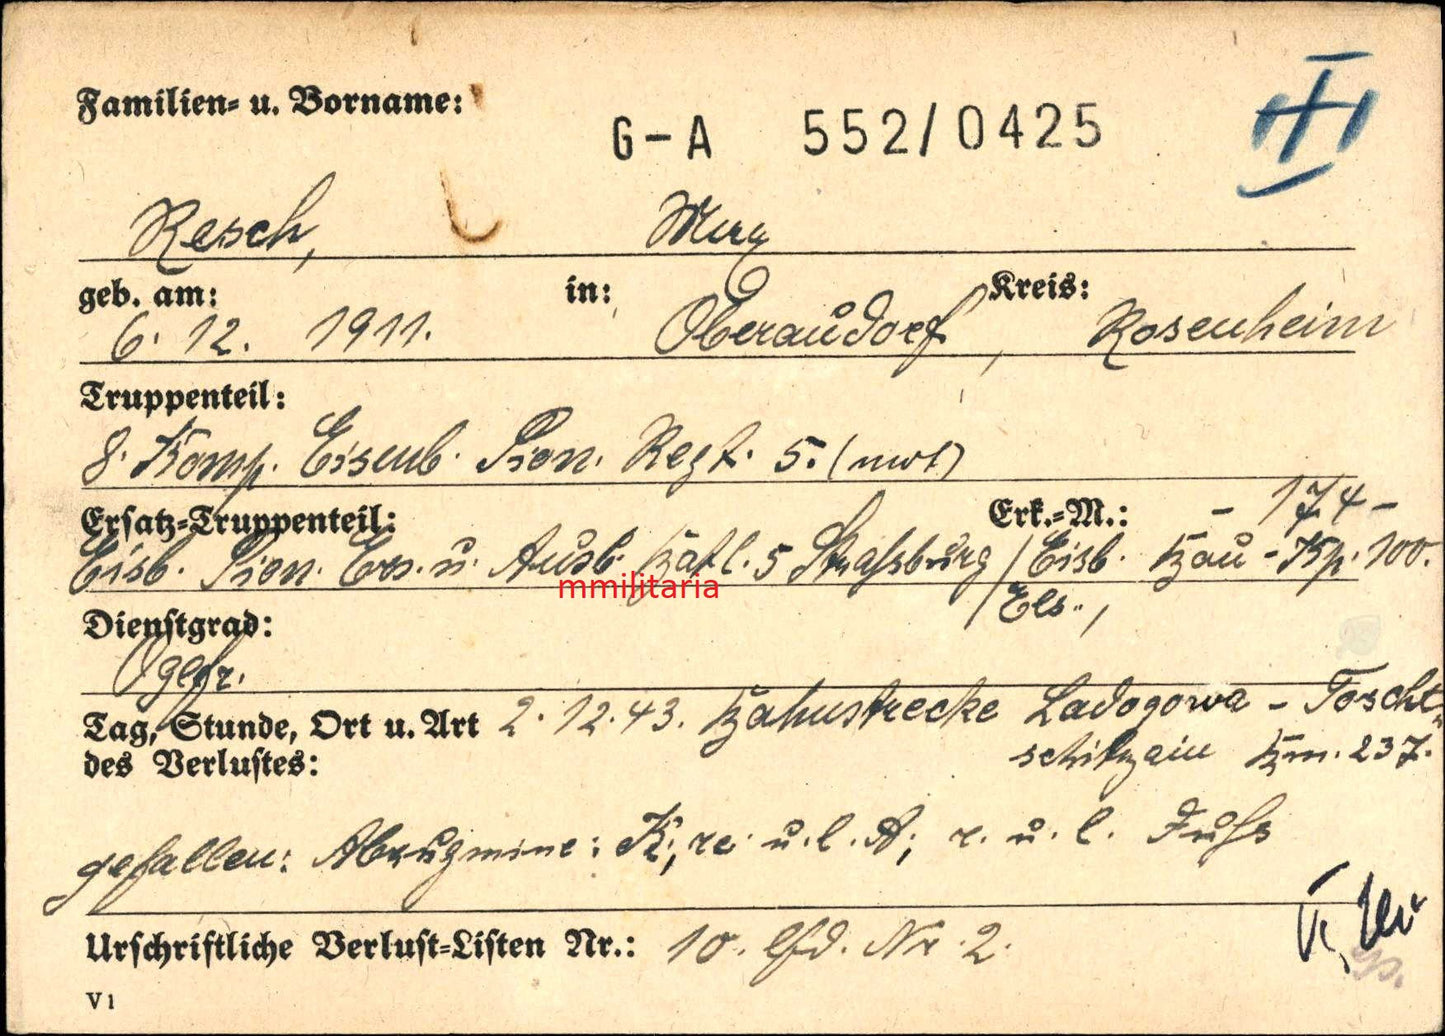 Familien- u. Vorname:
G-A 552/0425
III
Resch,
geb. am: in: Kreis:
6. 12. 1911. Oberaudorf, Rosenheim
Truppenteil:
8. Komp. Eisenb. Pion. Regt. 5. (mot)
Ersatz-Truppenteil: Erk.-M.: - 174 -
Eisb. Pion. Ers. u. Ausb. Batl. 5 Straßburg / Eisb. Bau-Kp. 100.
/ Els.,
mmilitaria
Dienstgrad:
Ogefr.
Tag, Stunde, Ort u. Art 2. 12. 43. Bahnstrecke Ladogowa -
des Verlustes: Km. 237.
gefallen: Abzugmine: K., re. u. l. A; r. u. l. Fuß
Urschriftliche Verlust-Listen Nr.: 10. lfd. Nr. 2.
V 1